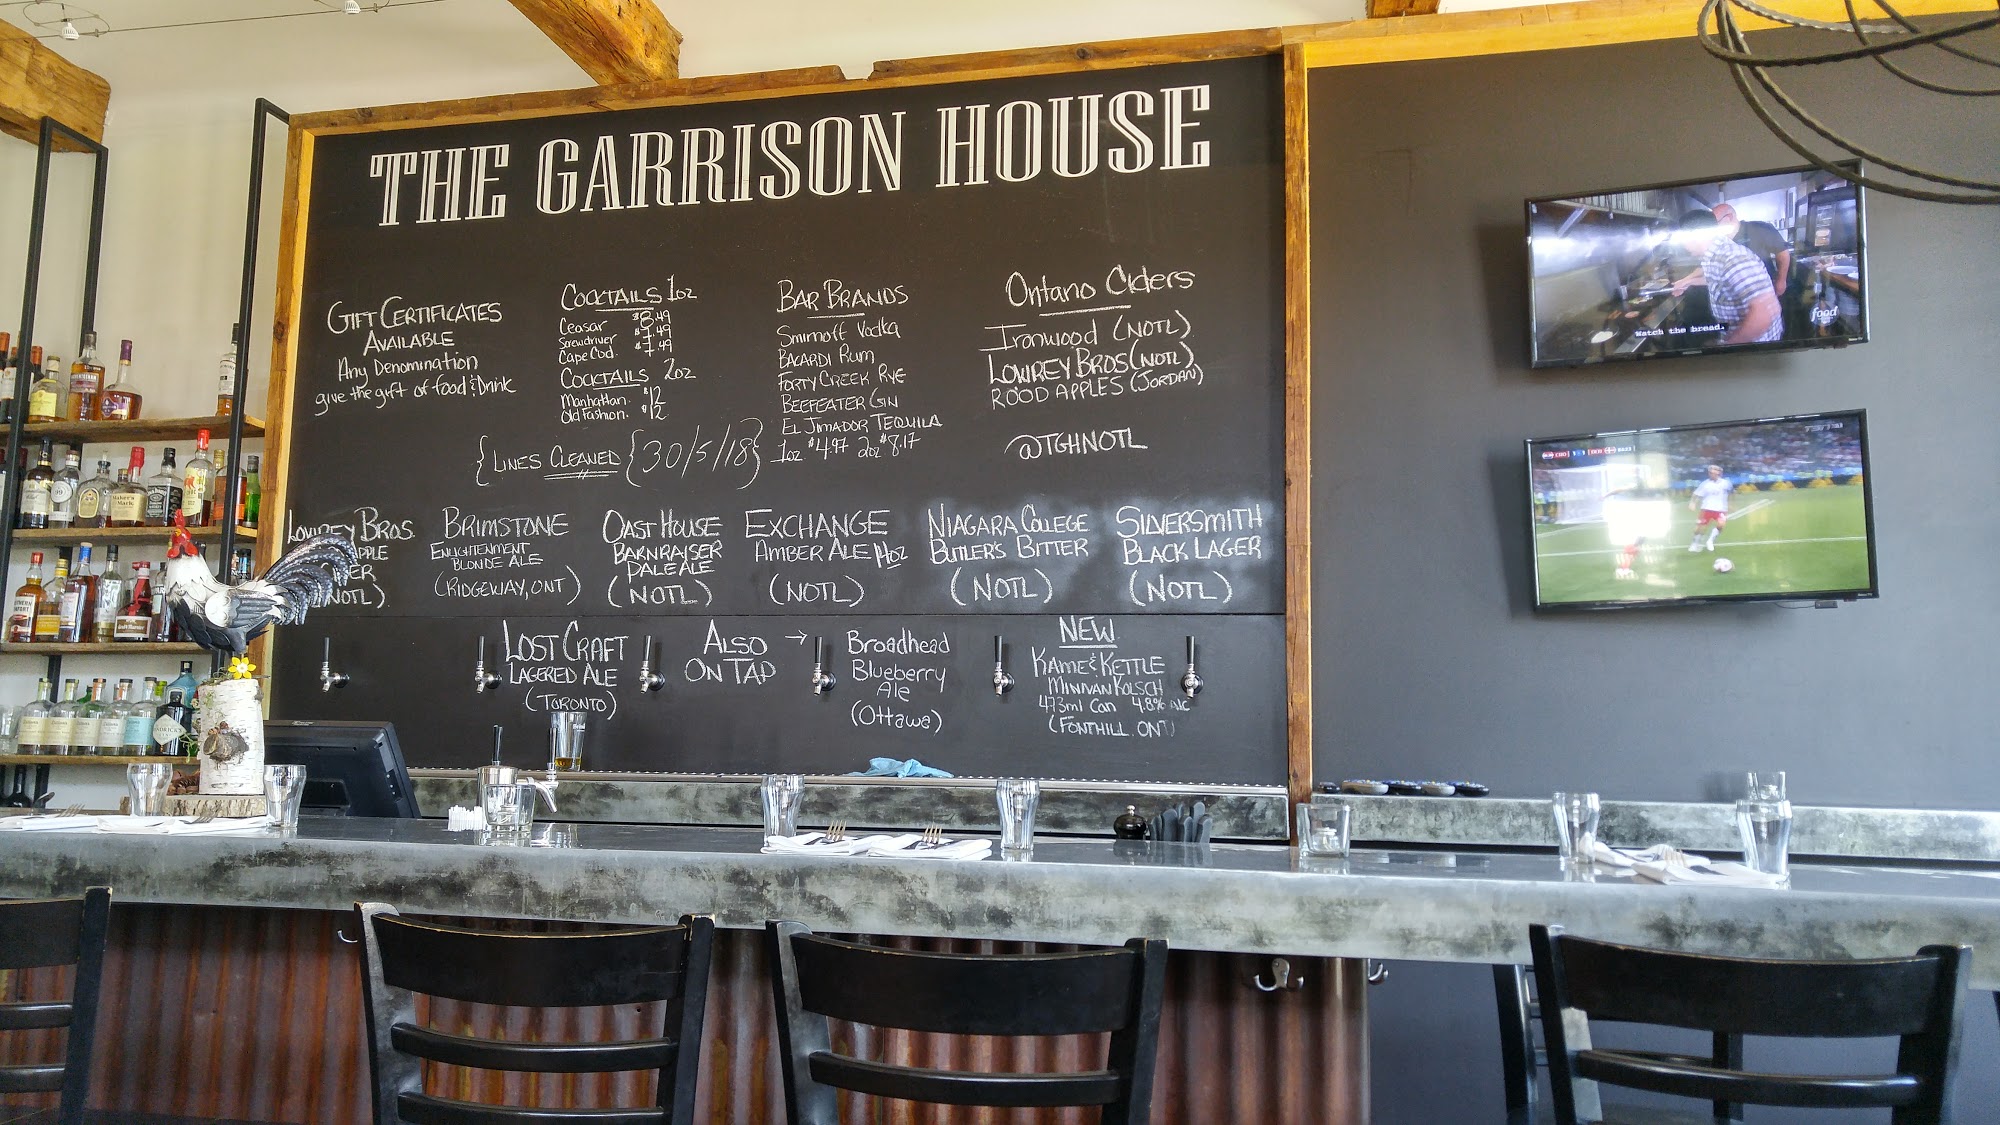 THE GARRISON HOUSE
GIFT CERTIFICATES
AVAILABLE
Any Denomination
give the gift of food & Drink
COCKTAILS 1oz
Ceasar $8.49
Screwdriver $7.49
Cape Cod. $7.49
COCKTAILS 2oz
Manhattan. $12
Old Fashion. $12
BAR BRANDS
Smirnoff Vodka
BACARDI RUM
FORTY CREEK RYE
BEEFEATER GIN
EL JIMADOR TEQUILA
1oz $4.97 2oz $8.17
Ontario Ciders
Ironwood (NOTL)
LOWREY BROS (NOTL)
ROOD APPLES (JORDAN)
@TGHNOTL
{LINES CLEANED {30/5/18}
LOWREY BROS.
APPLE
NOTL)
BRIMSTONE
ENLIGHTENMENT
BLONDE ALE
(RIDGEWAY, ONT)
OAST HOUSE
BARNRAISER
PALE ALE
(NOTL)
EXCHANGE
AMBER ALE 14oz
(NOTL)
NIAGARA COLLEGE
BUTLER'S BITTER
(NOTL)
SILVERSMITH
BLACK LAGER
(NOTL)
LOST CRAFT
LAGERED ALE
(TORONTO)
ALSO →
ON TAP
Broadhead
Blueberry
Ale
(Ottawa)
NEW
KAME & KETTLE
MINIVAN KOLSCH
473ml Can 4.8% alc
(FONTHILL. ONT)
Watch the bread.
food
Maker's
Mark